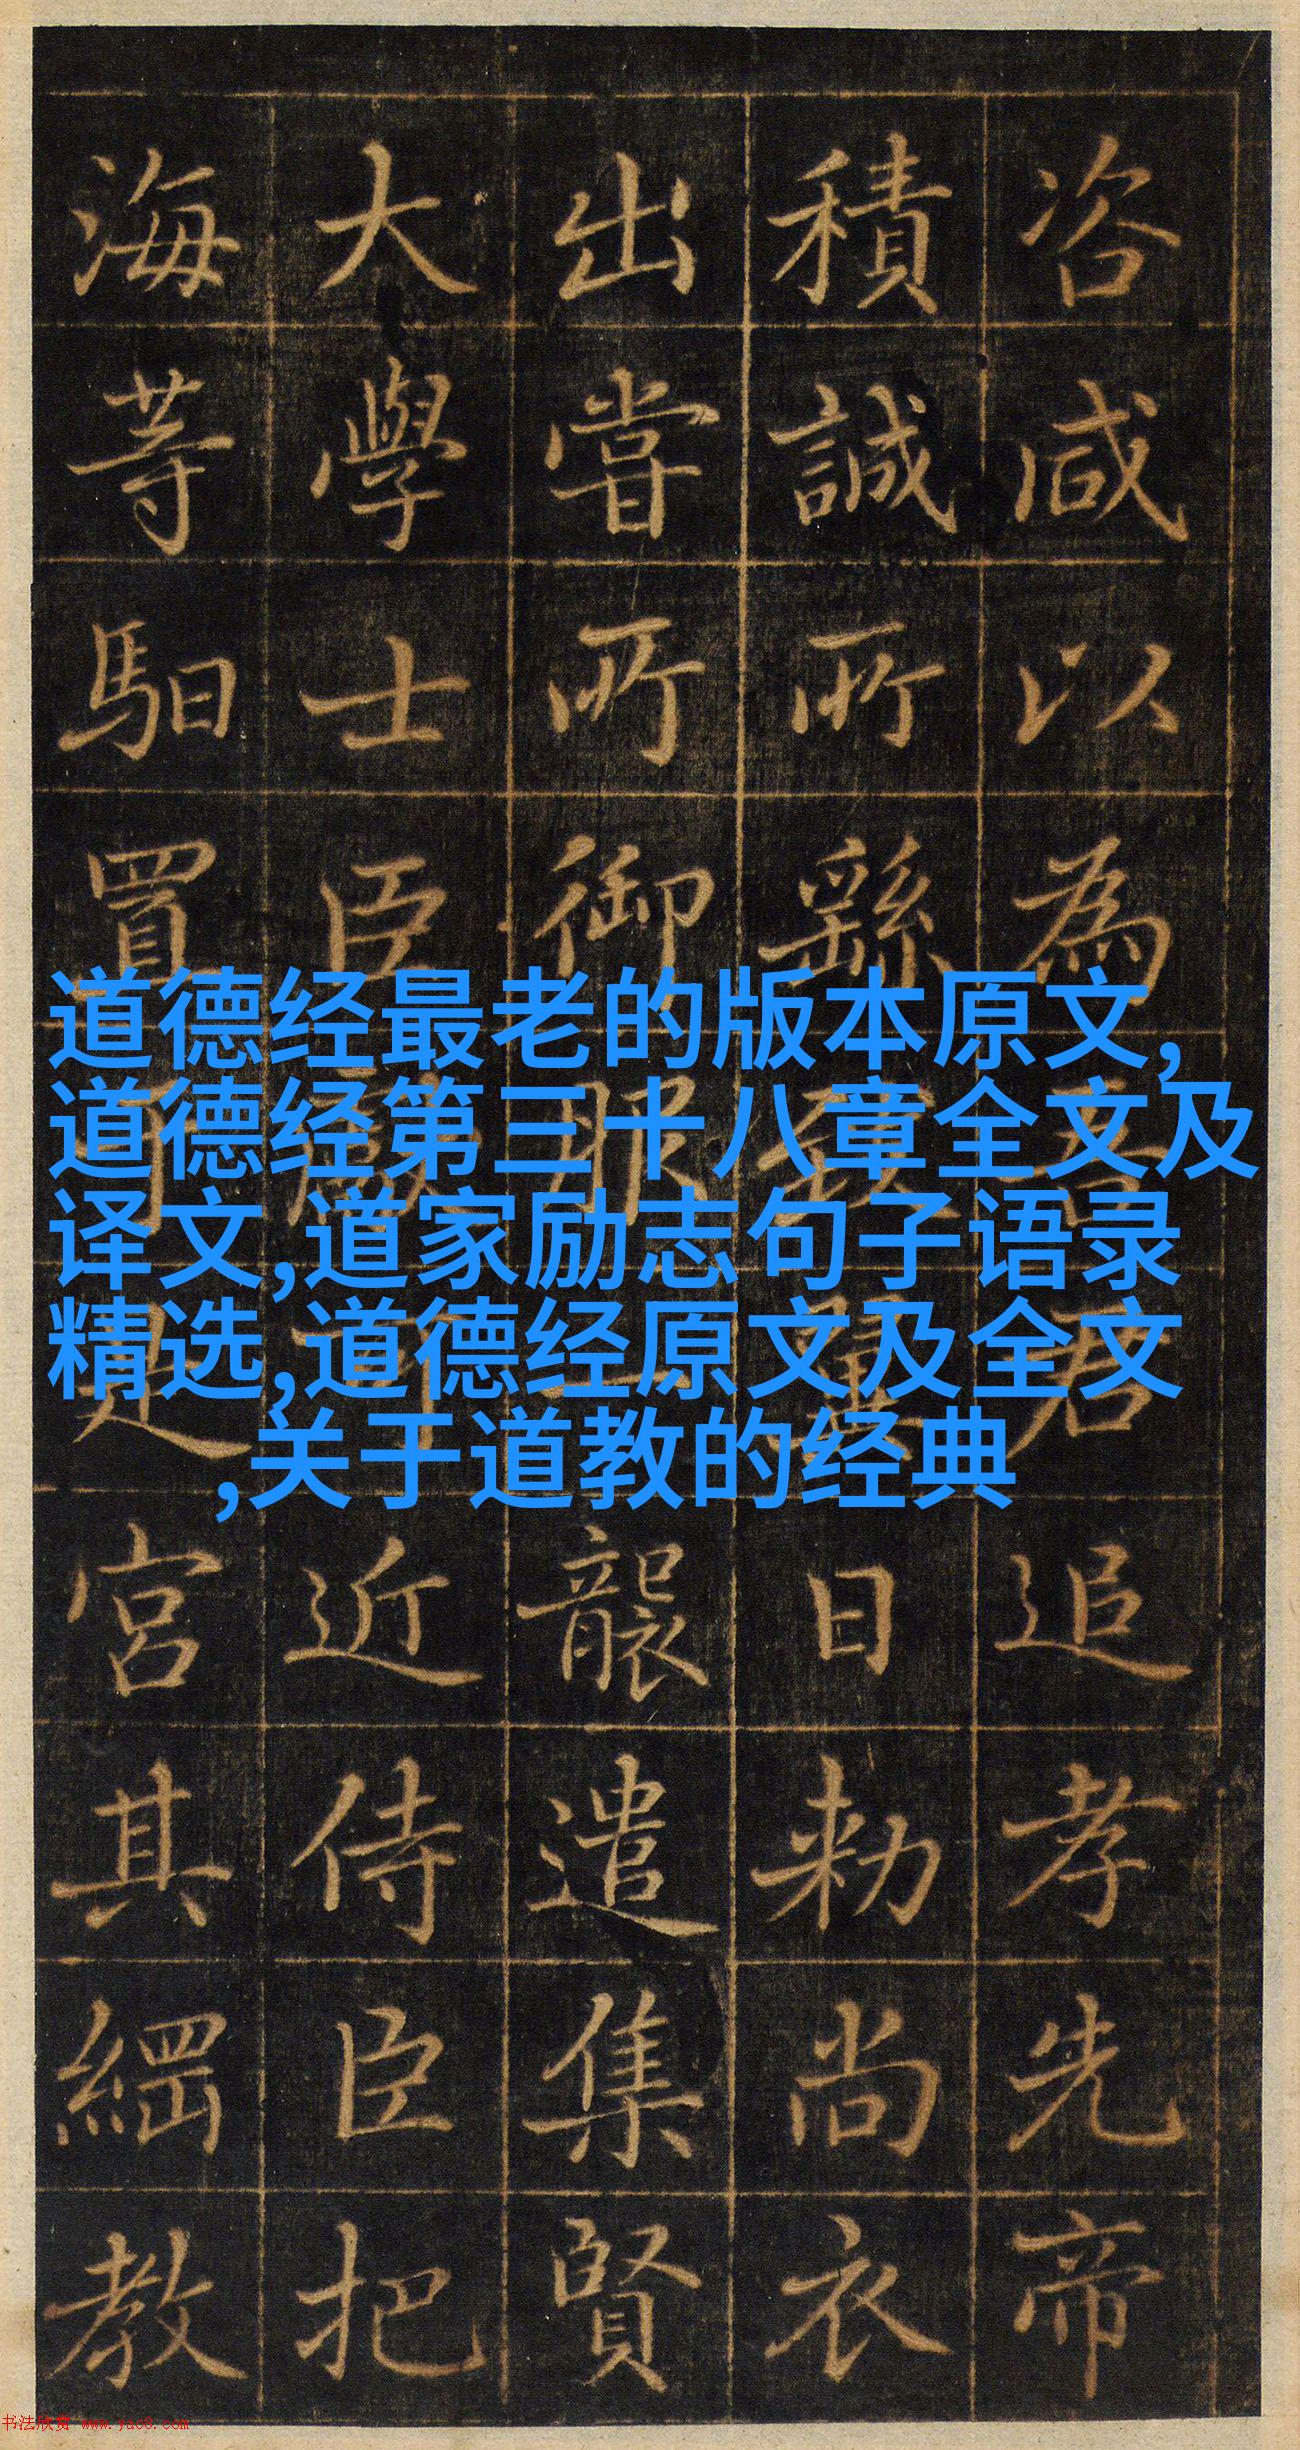 咨咸以為
追孝先帝
積誠所繇
日敕尚衣
出嘗所御服
襲遣集賢
大學士臣
近侍臣把
海等馹置
宮其綱教
道德经最老的版本原文,
道德经第三十八章全文及
译文,道家励志句子语录
精选,道德经原文及全文
,关于道教的经典
书法欣赏 www.yac8.com